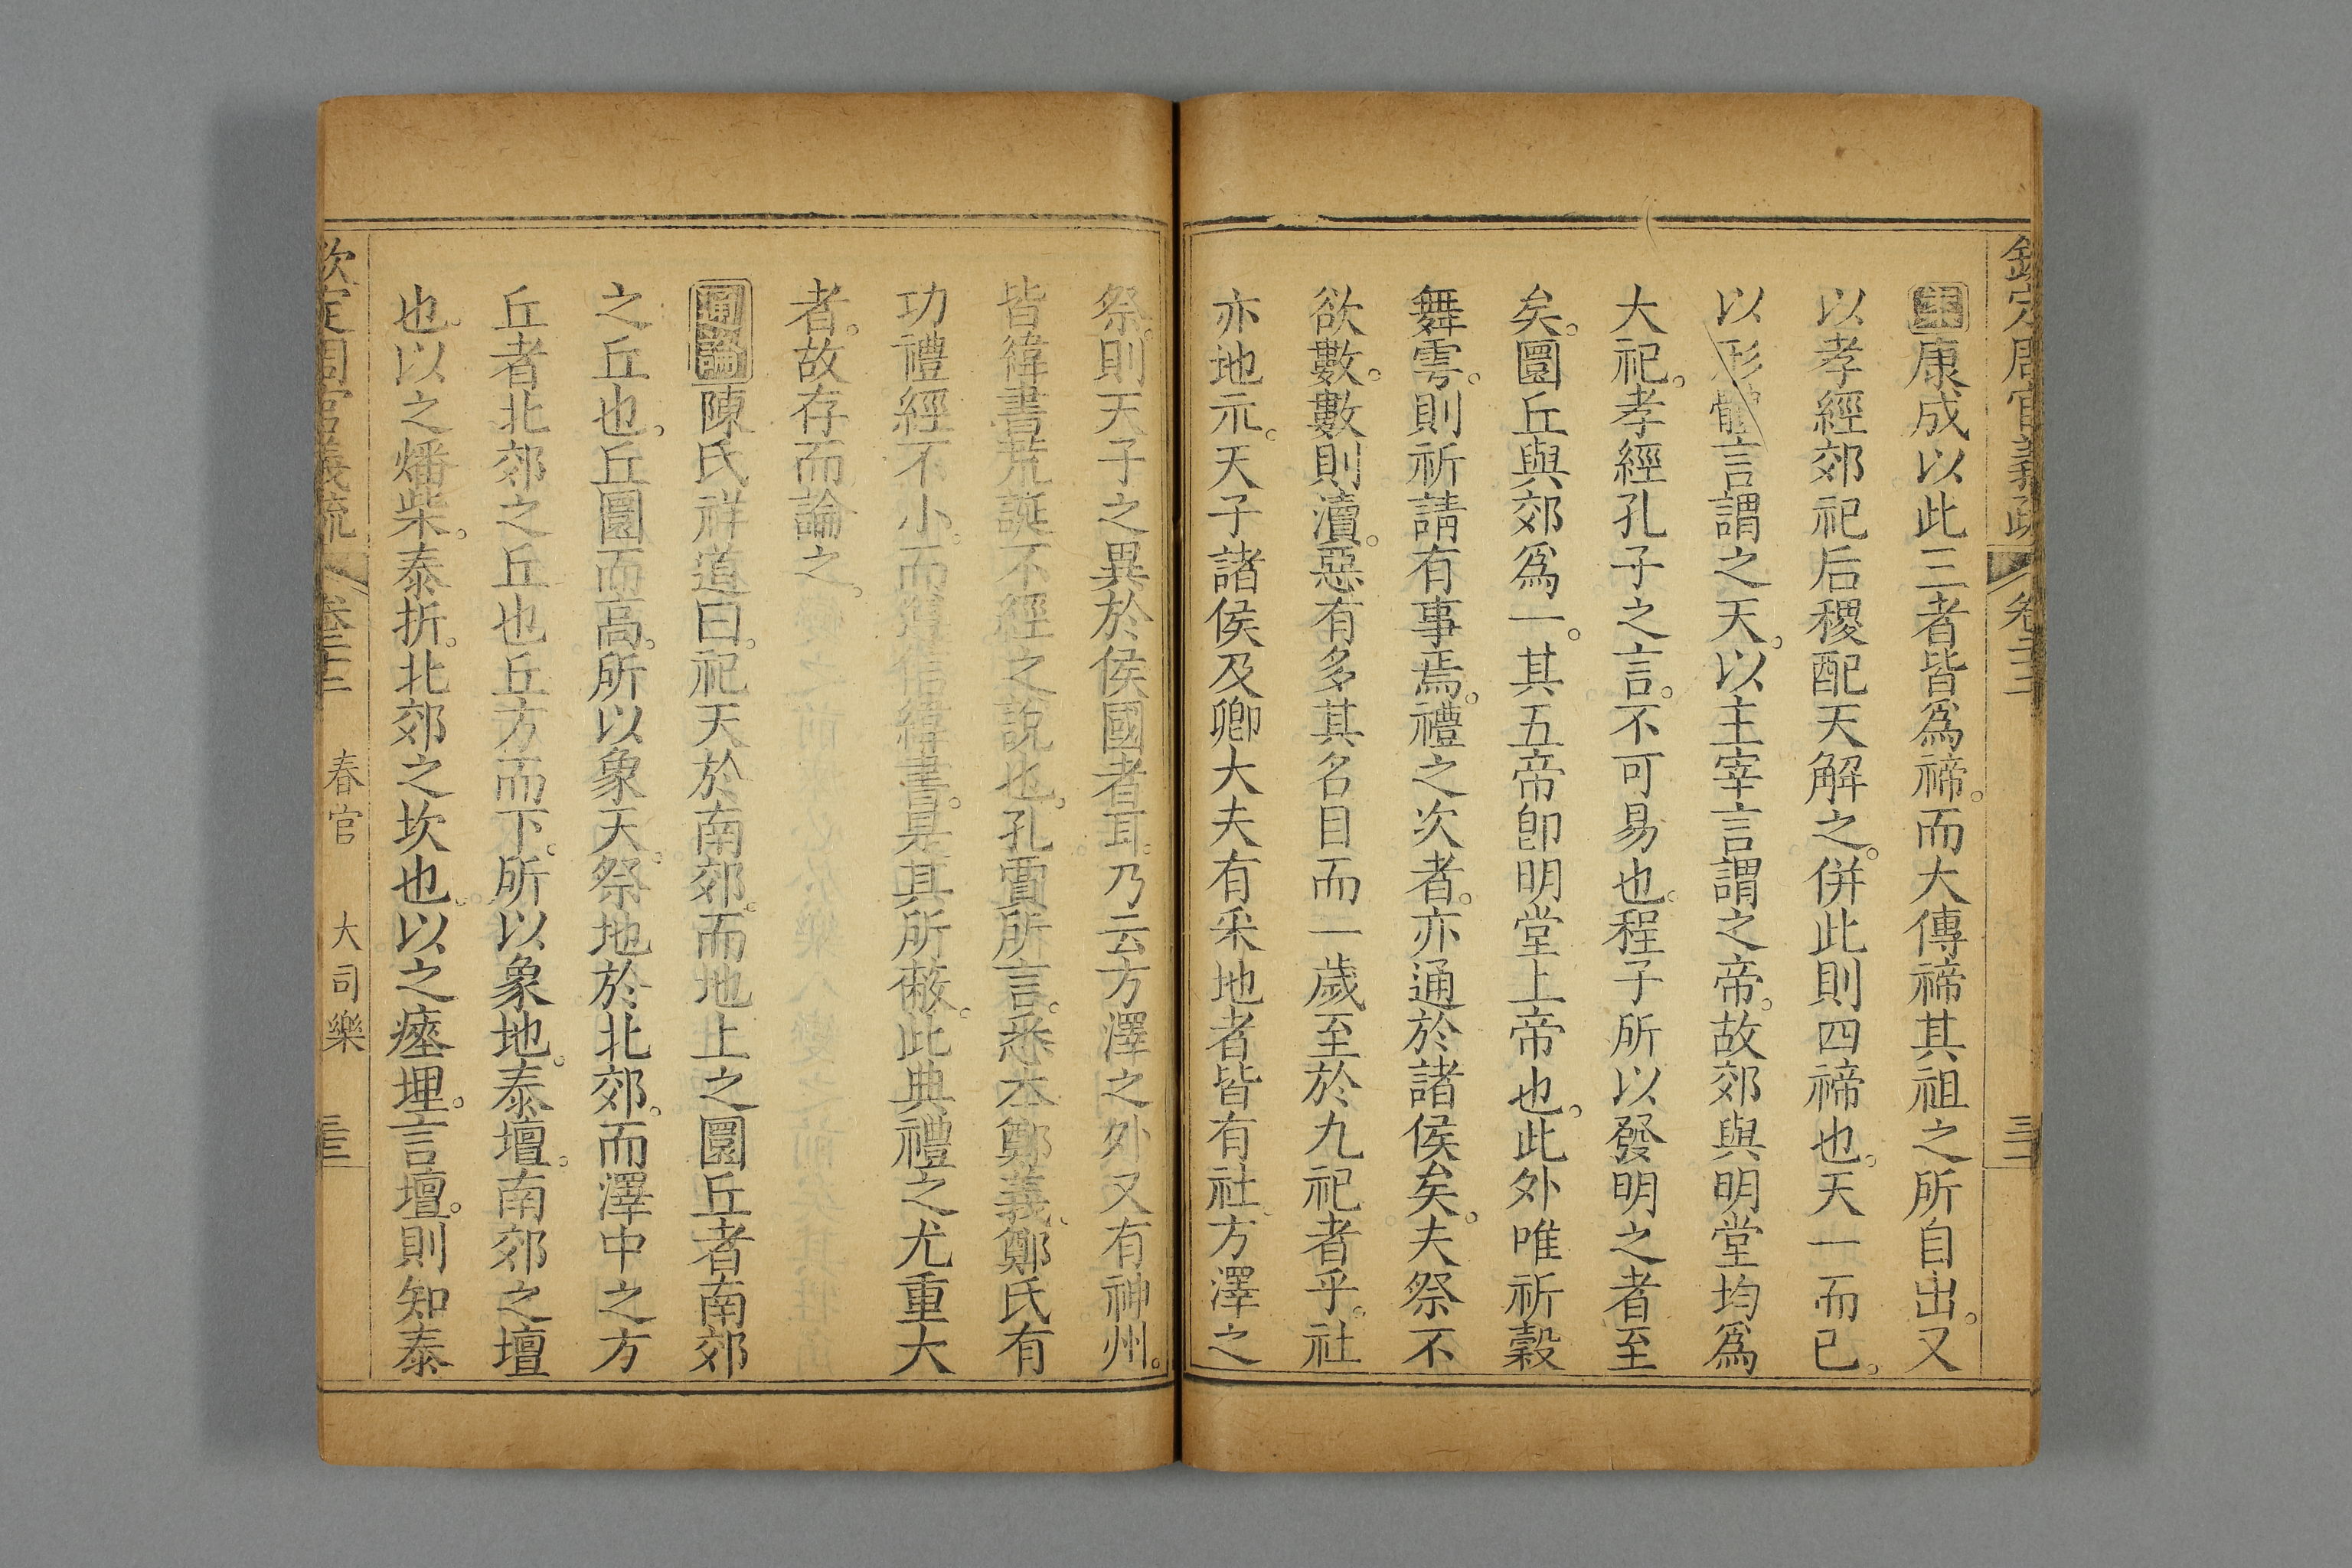 欽定周官義疏 卷二十二
案康成以此三者皆爲禘。而大傳禘其祖之所自出。又
以孝經郊祀后稷配天解之。併此則四禘也。天一而已。
以形體言謂之天。以主宰言謂之帝。故郊與明堂均爲
大祀。孝經孔子之言。不可易也。程子所以發明之者至
矣。圜丘與郊爲一。其五帝卽明堂上帝也。此外唯祈穀
舞雩。則祈請有事焉。禮之次者。亦通於諸侯矣。夫祭不
欲數。數則瀆。惡有多其名目而一歲至於九祀者乎。社
亦地示。天子諸侯及卿大夫有采地者皆有社。方澤之
祭。則天子之異於侯國者耳。乃云方澤之外又有神州。
皆緯書荒誕不經之說也。孔賈所言。悉本鄭義。鄭氏有
功禮經不小。而篤信緯書。是其所蔽。此典禮之尤重大
者。故存而論之。
通論陳氏祥道曰。祀天於南郊。而地上之圜丘者南郊
之丘也。丘圜而高。所以象天。祭地於北郊。而澤中之方
丘者北郊之丘也丘方而下。所以象地。泰壇。南郊之壇
也。以之燔柴。泰折。北郊之坎也。以之瘞埋。言壇。則知泰
欽定周官義疏 卷二十二 春官 大司樂